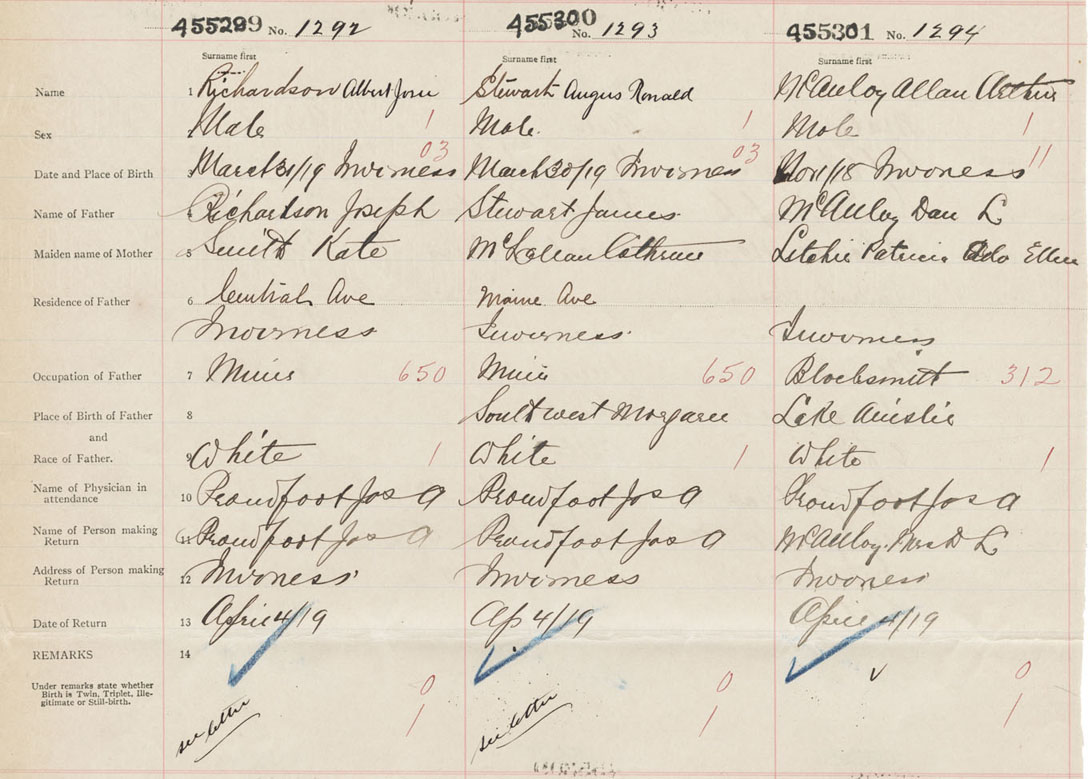 455299 No. 1292 455300 No. 1293 455301 No. 1294
Surname first Surname first Surname first
Name 1 Richardson Albert John Stewart Angus Ronald McAuley Allan Arthur
Sex Male 1 Male 1 Male 1
03 03 11
Date and Place of Birth March 31/19 Inverness March 30/19 Inverness Nov 1/18 Inverness
Name of Father 4 Richardson Joseph Stewart James McAuley Dan L
Maiden name of Mother 5 Smith Kate McLellan Cathrine Patricia Ada Ellen
Residence of Father 6 Central Ave Maine Ave
Inverness Inverness Inverness
Occupation of Father 7 Miner 650 Miner 650 Blacksmith 312
Place of Birth of Father 8 South west Margaree Lake Ainslie
and
Race of Father. 9 White 1 White 1 White 1
Name of Physician in attendance 10 Proudfoot Jas A Proudfoot Jas A Proudfoot Jas A
Name of Person making Return 11 Proudfoot Jas A Proudfoot Jas A McAuley Mrs D L
Address of Person making Return 12 Inverness Inverness Inverness
Date of Return 13 April 4/19 Ap 4/19 April 4/19
REMARKS 14
Under remarks state whether
Birth is Twin, Triplet, Ille-
gitimate or Still-birth.
0 0 0
1 1 1
see letter see letter